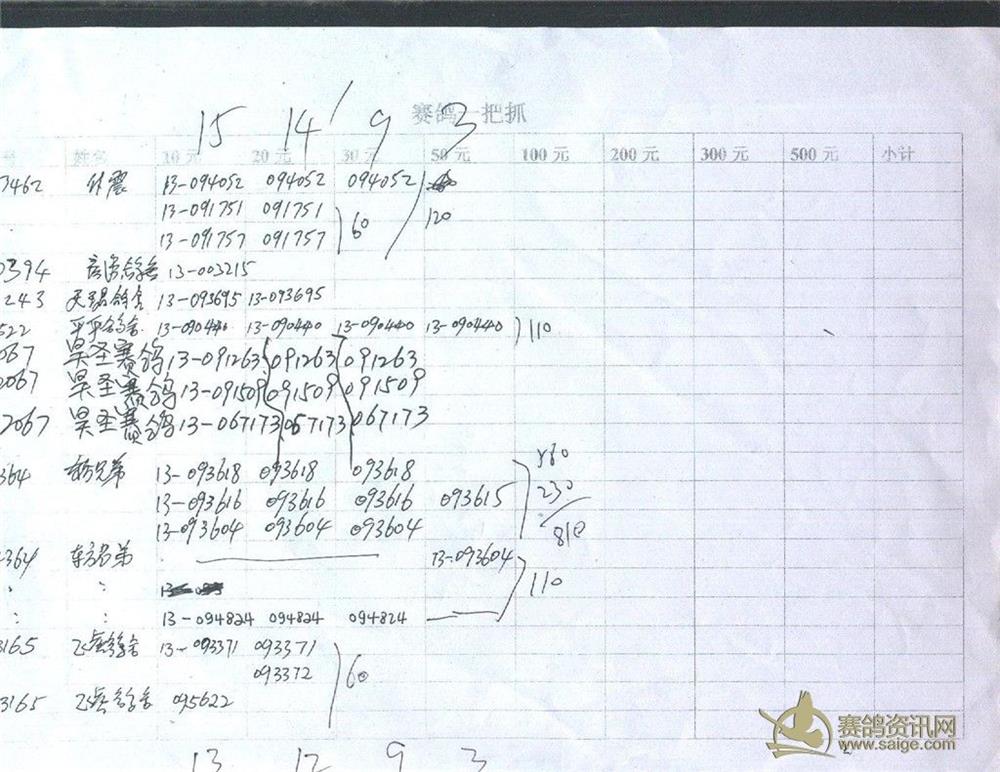 15 14 9 3
赛鸽一把抓
号 姓名 10 元 20 元 30 元 50 元 100 元 200 元 300 元 500 元 小计
7462 休震 13-094052 094052 094052
13-091751 091751 60 120
13-091757 091757
0394 13-003215
243 天锡鸽舍 13-093695 13-093695
522 平平鸽舍 13-090440 13-090440 13-090440 13-090440 110
067 昊圣赛鸽 13-091263 091263 091263
2067 昊圣赛鸽 13-091509 091509 091509
2067 昊圣赛鸽 13-067173 067173 067173
364 兄弟 13-093618 093618 093618 580
13-093616 093616 093616 093615 230
13-093604 093604 093604 810
364 东方兄弟 13-093604
110
: : 13-094824 094824 094824
3165 鸽舍 13-093371 093371
093372 60
3165 鸽舍 095622
赛鸽资讯网
www.saige.com
13 12 9 3